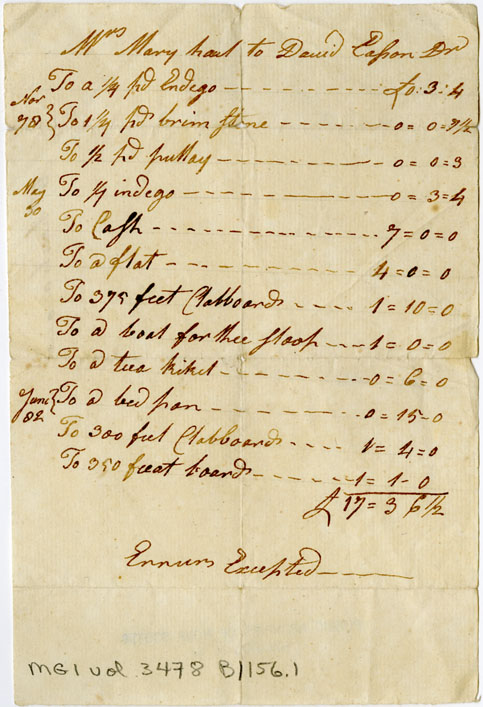 Mrs Mary haut to David Easson Dr
To a 1/4 pd Endego £0:3:4
Nov 78 } To 1 1/4 pd brimstone 0=0=7 1/2
To 1/2 pd puttay 0=0=3
May 30 To 1/4 indego 0=3=4
To Cash 7=0=0
To a flat 4=0=0
To 375 feet Clabboards 1=10=0
To a boat for thee sloop 1=0=0
To a tea kikel 0=6=0
June 82 } To a bed pan 0=15-0
To 300 feet Clabboards 1=4=0
To 350 feeat boards 1=1-0
£ 17=3 6 1/2
Errurs Excepted
MG1 vol. 3478 B/156.1